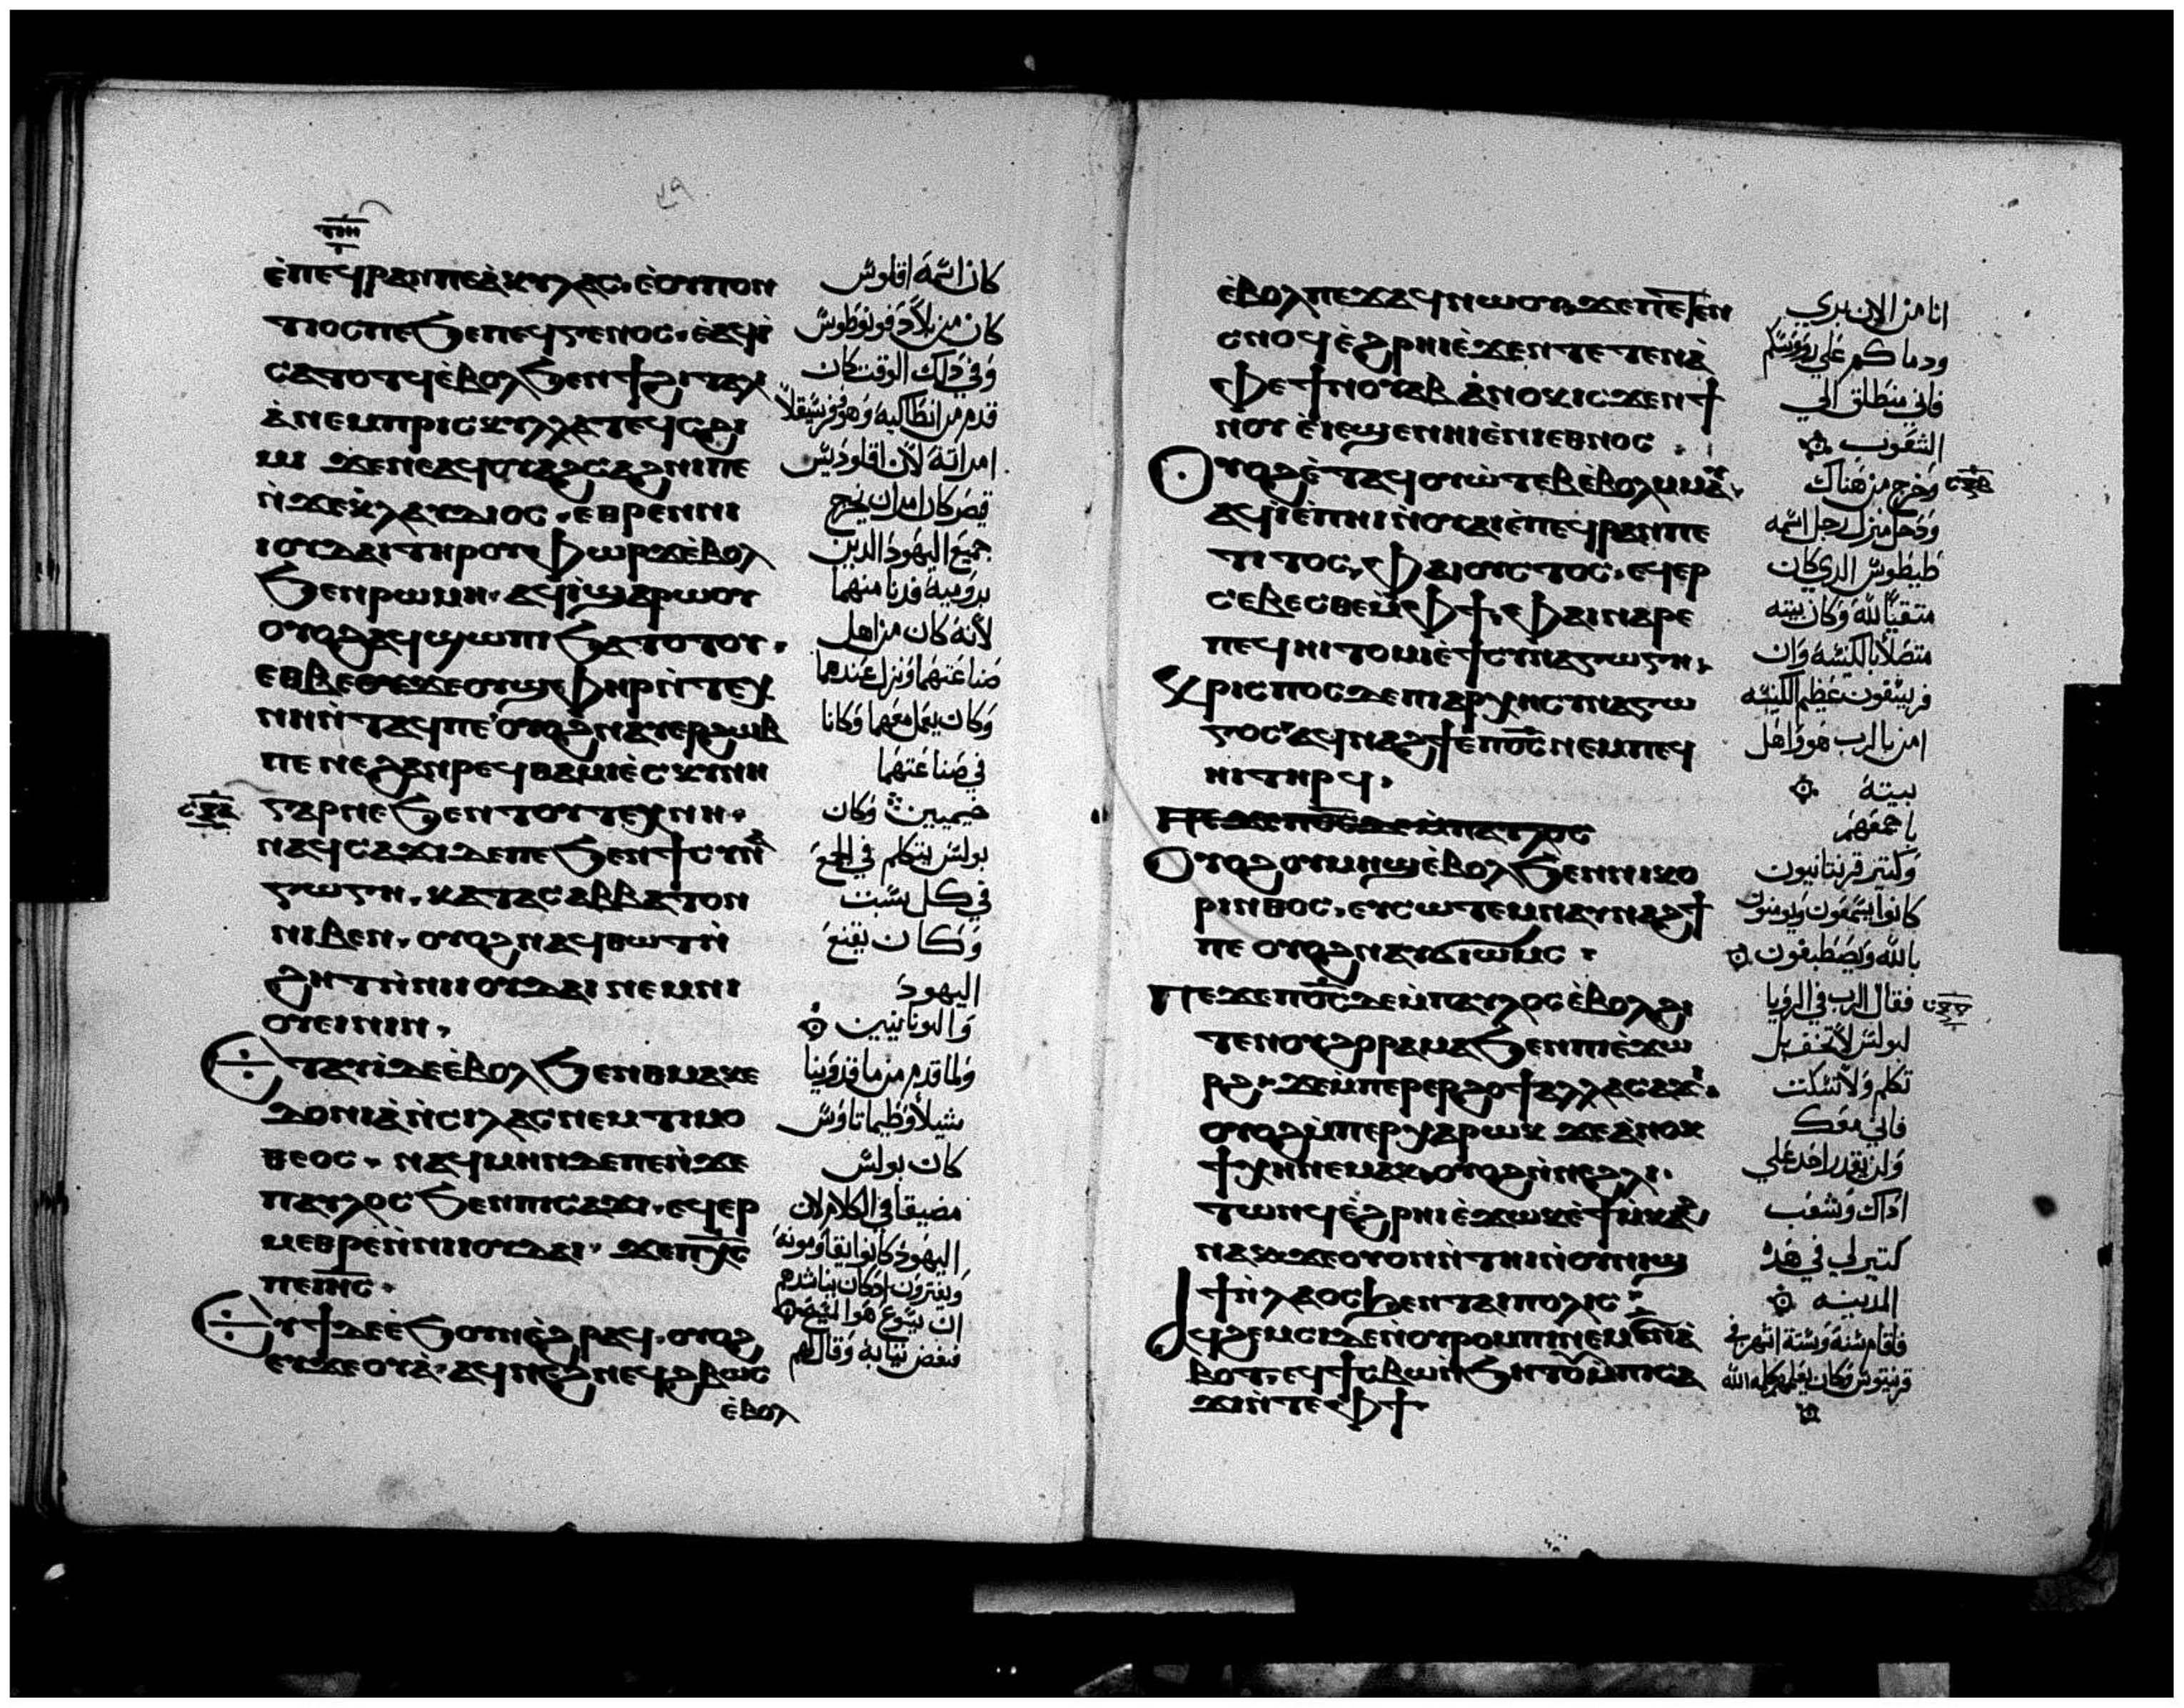 ⲉ̀ⲡⲉϥⲣⲁⲛ ⲡⲉ ⲁ̀ⲕⲩⲗⲁⲥ· ⲉ̀ⲟⲩⲡⲟⲛ
ⲧⲓⲟⲥ ⲡⲉ ϧⲉⲛ ⲡⲉϥⲅⲉⲛⲟⲥ· ⲉ̀ⲁϥⲓ̀
ⲥⲁⲧⲟⲧϥ ⲉ̀ⲃⲟⲗ ϧⲉⲛ ϯϩⲓⲧⲁⲗ
ⲁ̀ ⲛⲉⲙ ⲡⲣⲓⲥⲕⲩⲗⲗⲁ ⲧⲉϥⲥϩⲓ
ⲙⲓ ϫⲉ ⲛⲉ ⲁϥⲟⲩⲁϩⲥⲁϩⲛⲓ ⲡⲉ
ⲛ̀ϫⲉ ⲕ̀ⲗⲁⲩⲇⲓⲟⲥ· ⲉⲑⲣⲉ ⲛⲓ
ⲓⲟⲩⲇⲁⲓ ⲧⲏⲣⲟⲩ ⲫⲱⲣϫ ⲉ̀ⲃⲟⲗ
ϧⲉⲛ ⲣⲱⲙⲏ· ⲁϥⲓ̀ ϣⲁⲣⲱⲟⲩ
ⲟⲩⲟϩ ⲁϥϣⲱⲡⲓ ϧⲁⲧⲟⲧⲟⲩ·
ⲉⲑⲃⲉ ϫⲉ ⲟⲩϣⲫⲏⲣ ⲛ̀ⲧⲉⲭ
ⲛⲏ ⲛ̀ⲧⲁϥ ⲡⲉ ⲟⲩⲟϩ ⲛⲁⲩⲉⲣϩⲱⲃ
ⲡⲉ ⲛⲉ ϩⲁⲛⲣⲉϥⲑⲁⲙⲓⲉ̀ ⲥⲕⲩⲛⲏ
ⲅⲁⲣ ⲛⲉ ϧⲉⲛ ⲧⲟⲩⲧⲉⲭⲛⲏ·
ⲛⲁϥⲥⲁϫⲓ ⲇⲉ ⲡⲉ ϧⲉⲛ ϯⲥⲩⲛⲁ
ⲅⲱⲅⲏ· ⲕⲁⲧⲁ ⲥⲁⲃⲃⲁⲧⲟⲛ
ⲛⲓⲃⲉⲛ· ⲟⲩⲟϩ ⲛⲁϥⲑⲱⲧ ⲛ̀
ϩⲏⲧ ⲛ̀ⲛⲓⲓⲟⲩⲇⲁⲓ ⲛⲉⲙ ⲛⲓ
ⲟⲩⲉⲓⲛⲓⲛ·
ⲉⲧⲁⲩⲓ̀ ⲇⲉ ⲉ̀ⲃⲟⲗ ϧⲉⲛ ⲑⲙⲁⲕⲉ
ⲇⲟⲛⲓⲁ̀ ⲛ̀ⲥⲓⲗⲁⲥ ⲛⲉⲙ ⲧⲓⲙⲟ
ⲑⲉⲟⲥ· ⲛⲁϥⲙⲏⲛ ⲇⲉ ⲡⲉ ⲛ̀ϫⲉ
ⲡⲁⲩⲗⲟⲥ ϧⲉⲛ ⲡⲓⲥⲁϫⲓ· ⲉϥⲉⲣ
ⲙⲉⲑⲣⲉ ⲛ̀ⲛⲓⲓⲟⲩⲇⲁⲓ· ϫⲉ ⲡⲭ̅ⲥ̅
ⲡⲉ ⲓⲏ̅ⲥ̅·
ⲉⲩϯ ⲇⲉ ⲉ̀ϧⲟⲩⲛ ⲉ̀ϩⲣⲁϥ· ⲟⲩⲟϩ
ⲉⲩϫⲉⲟⲩⲁ̀· ⲁϥⲛⲉϩ ⲛⲉϥϩⲃⲱⲥ
ⲉ̀ⲃⲟⲗ
كان اسمه اقلوس
كان من بلاد فونوطوس
وفي ذلك الوقت كان
قدم من انطاكيه وهو وفريسقلا
امراته لان اقلوديس
قيصر كان امر ان يخرج
جميع اليهود الدين
برومية فدنا منهما
لانه كان من اهل
صناعتهما ونزل عندهما
وكان يعمل معهما وكانا
في صناعتهما
خيميين وكان
بولس يتكلم في المجمع
في كل سبت
وكان يقنع
اليهود
واليونانيين
ولما قدم من ماقدونيا
شيلا وطيماتاوس
كان بولس
مضيقا في الكلام لان
اليهود كانوا يقاومونه
ويفترون اد كان يناشدهم
ان يسوع هو المسيح
فنفض تيابه وقال لهم
ⲉ̀ⲃⲟⲗ ⲡⲉϫⲁϥ ⲛⲱⲟⲩ ϫⲉ ⲡⲉⲧⲉⲛ
ⲥⲛⲟϥ ⲉ̀ϩⲣⲏⲓ ⲉ̀ϫⲉⲛ ⲧⲉⲧⲉⲛⲁ̀
ⲫⲉ ϯⲧⲟⲩⲃⲏⲟⲩⲧ ⲁ̀ⲛⲟⲕ ⲓⲥϫⲉⲛ ϯ
ⲛⲟⲩ ⲉ̀ⲓⲉϣⲉ ⲛⲏⲓ ⲉ̀ⲛⲓⲉⲑⲛⲟⲥ·
ⲟⲩⲟϩ ⲉ̀ⲧⲁϥⲟⲩⲱ̀ⲧⲉⲃ ⲉ̀ⲃⲟⲗ ⲙ̀ⲙⲁⲩ
ⲁϥⲓ̀ ⲉ̀ⲡⲏⲓ ⲛ̀ⲟⲩⲁⲓ ⲉ̀ⲡⲉϥⲣⲁⲛ ⲡⲉ
ⲧⲓⲧⲟⲥ· ⲫⲁ ⲓⲟⲩⲥⲧⲟⲥ· ⲉϥⲉⲣ
ⲥⲉⲃⲉⲥⲑⲉ ⲙ̀ⲫϯ· ⲫⲁⲓ ⲛⲁⲣⲉ
ⲡⲉϥⲏⲓ ⲧⲟⲙⲓ ⲉ̀ϯⲥⲩⲛⲁⲅⲱⲅⲏ·
ⲭⲣⲓⲥⲡⲟⲥ ⲇⲉ ⲡⲓⲁⲣⲭⲏⲥⲩⲛⲁⲅⲱ
ⲅⲟⲥ ⲁϥⲛⲁϩϯ ⲉ̀ⲡⲟ̅ⲥ̅ ⲛⲉⲙ ⲡⲉϥ
ⲏⲓ ⲧⲏⲣϥ·
ⲡⲉϫⲉ ⲡⲟ̅ⲥ̅ ⲇⲉ ⲙ̀ⲡⲁⲩⲗⲟⲥ
ⲟⲩⲟϩ ⲟⲩⲙⲏϣ ⲉ̀ⲃⲟⲗ ϧⲉⲛ ⲛⲓⲕⲟ
ⲣⲓⲛⲑⲟⲥ· ⲉⲩⲥⲱⲧⲉⲙ ⲛⲁⲩⲛⲁϩϯ
ⲡⲉ ⲟⲩⲟϩ ⲛⲁⲩϭⲓⲱⲙⲥ·
ⲡⲉϫⲉ ⲡⲟ̅ⲥ̅ ⲇⲉ ⲙ̀ⲡⲁⲩⲗⲟⲥ ⲉ̀ⲃⲟⲗ ϩⲓ
ⲧⲉⲛ ⲟⲩϩⲟⲣⲁⲙⲁ ϧⲉⲛ ⲡⲓⲉ̀ϫⲱ
ⲣϩ· ϫⲉ ⲙ̀ⲡⲉⲣⲉⲣϩⲟϯ ⲁⲗⲗⲁ ⲥⲁϫⲓ
ⲟⲩⲟϩ ⲙ̀ⲡⲉⲣⲭⲁⲣⲱⲕ ϫⲉ ⲁ̀ⲛⲟⲕ
ϯⲭⲏ ⲛⲉⲙⲁⲕ· ⲟⲩⲟϩ ⲛ̀ⲛⲉϩⲗⲓ
ⲧⲱⲛϥ ⲉ̀ϩⲣⲏⲓ ⲉ̀ϫⲱⲕ ⲉ̀ϯⲙ̀ⲕⲁϩ
ⲛⲁⲕ ϫⲉ ⲟⲩⲟⲛ ⲛ̀ⲧⲏⲓ ⲛ̀ⲟⲩⲙⲏϣ
ⲛ̀ⲗⲁⲟⲥ ϧⲉⲛ ⲧⲁⲓⲡⲟⲗⲓⲥ
ⲁϥϩⲉⲙⲥⲓ ⲇⲉ ⲛ̀ⲟⲩⲣⲟⲙⲡⲓ ⲛⲉⲙ ⲋ̅ ⲛ̀ⲁ̀
ⲃⲟⲧ· ⲉϥϯⲥⲃⲱ ⲛ̀ϧⲏⲧⲟⲩ ⲙ̀ⲡⲓⲥⲁ
ϫⲓ ⲛ̀ⲧⲉ ⲫϯ·
انا من الان بري
ودماكم علي روسكم
فاني منطلق الي
الشعوب
وخرج من هناك
ودخل منزل رجل اسمه
طيطوس الدي كان
متقيا لله وكان بيته
متصلا بالكنيسه وان
فريسقوس عظيم الكنيسه
امن بالرب هو واهل
بيته
باجمعهم
وكتير قرنتانيون
كانوا يسمعون ويومنون
بالله ويصطبغون
فقال الرب في الرؤيا
لبولس لا تخف بل
تكلم ولا تسكت
فاني معك
ولن يقدر احد علي
اداك وشعب
كتير لي في هده
المدينه
فاقام سنه وستة اشهر في
قرنتوس وكان يعلمهم كلمه الله